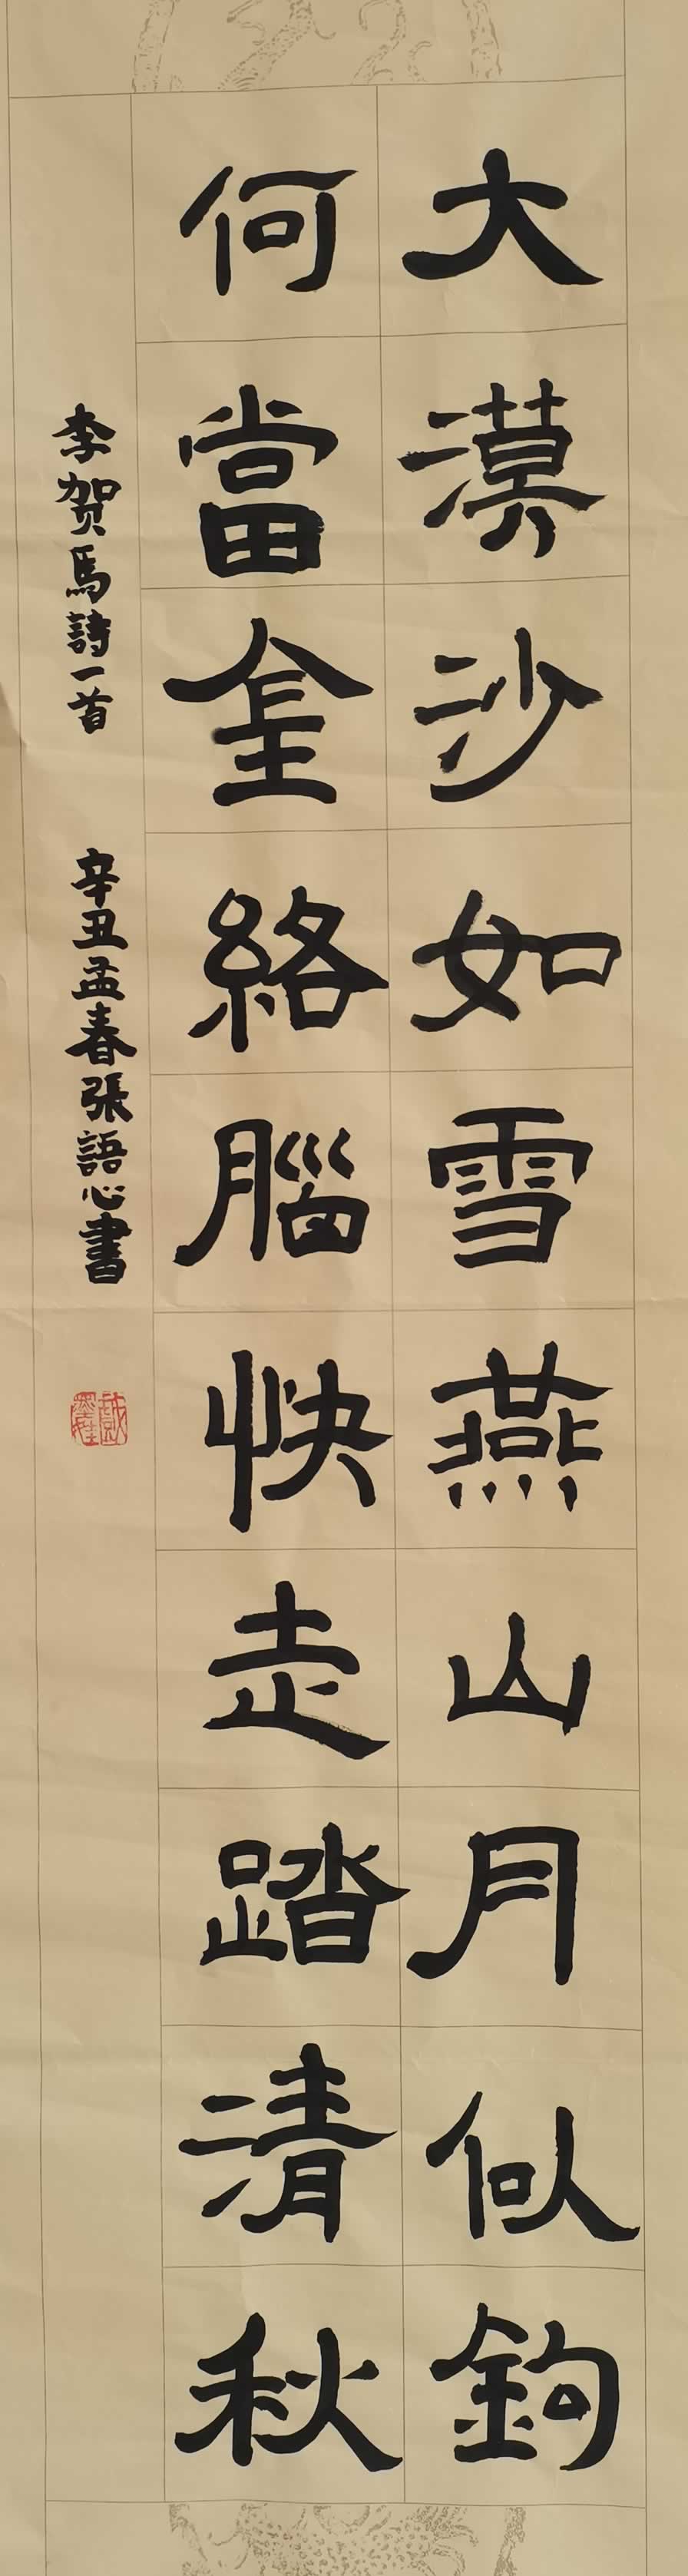 大漠沙如雪燕山月似鉤
何當金絡腦快走踏清秋
李贺馬詩一首 辛丑孟春張語心書